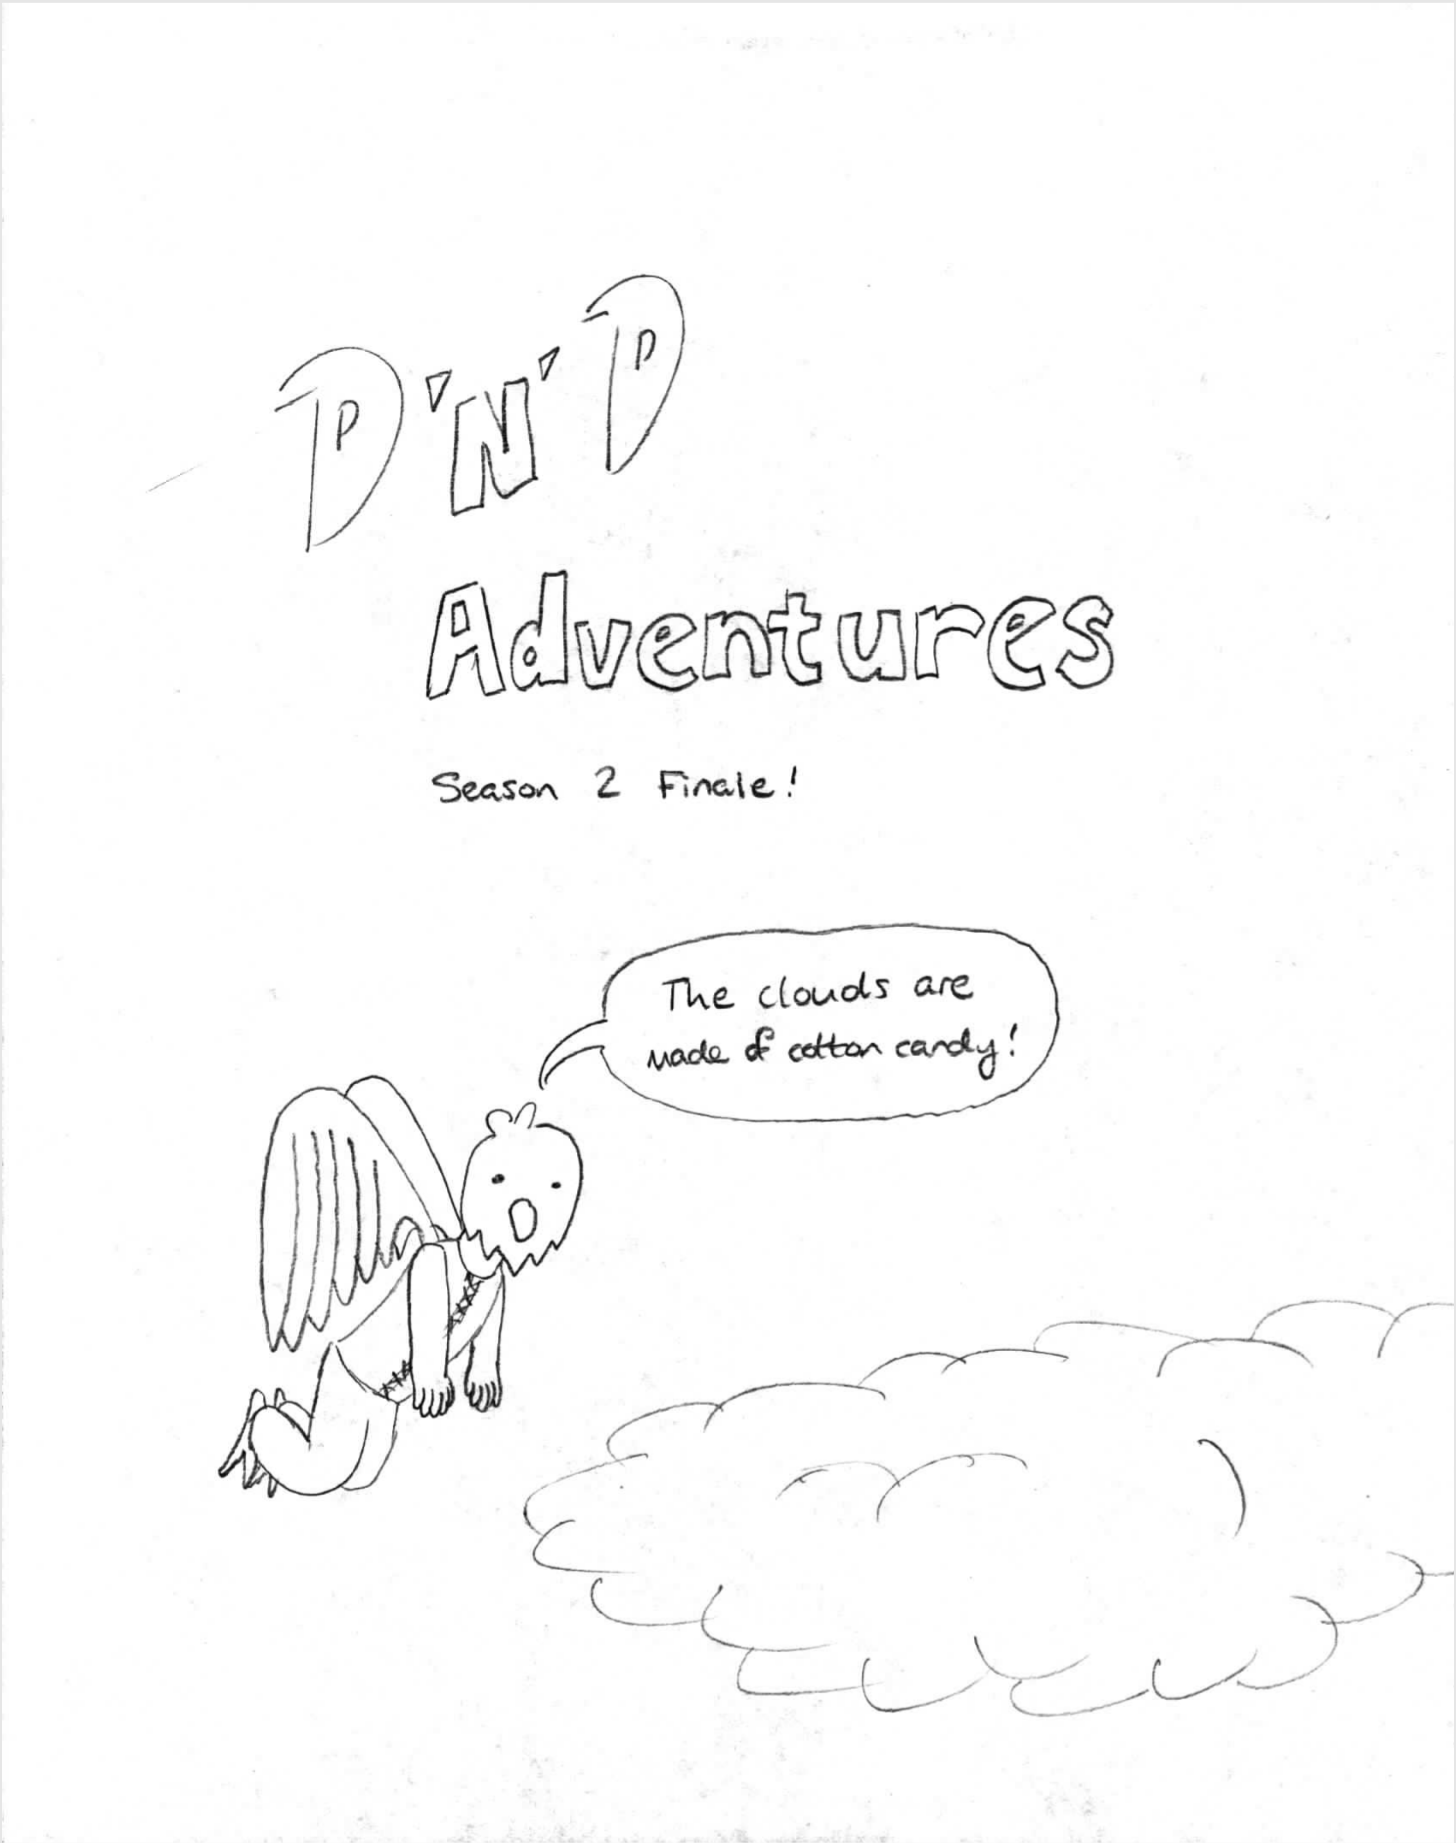 D'N'D
Adventures
Season 2 Finale!
The clouds are
made of cotton candy!